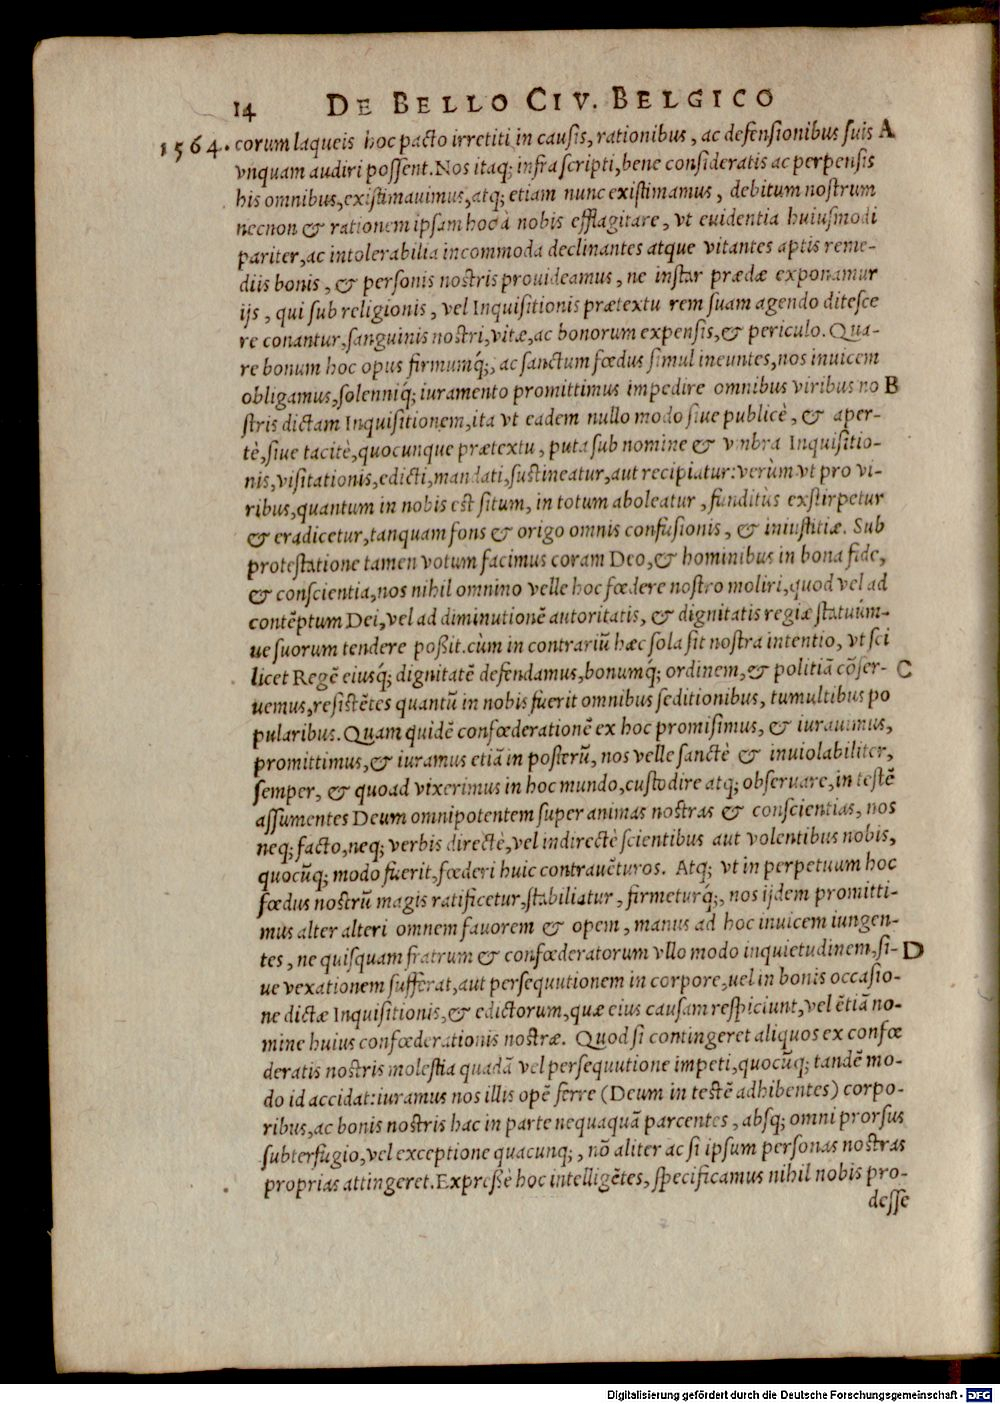 14 DE BELLO CIV. BELGICO
1564. corum laqueis hoc pacto irretiti in causis, rationibus, ac defensionibus suis A
vnquam audiri possent. Nos itaq; infra scripti, bene consideratis ac perpensis
his omnibus, existimauimus, atq; etiam nunc existimamus, debitum nostrum
necnon & rationem ipsam hoc à nobis efflagitare, vt euidentia huiusmodi
pariter, ac intolerabilia incommoda declinantes atque vitantes aptis reme-
diis bonis, & personis nostris prouideamus, ne instar prædæ exponamur
ijs, qui sub religionis, vel Inquisitionis prætextu rem suam agendo ditesce
re conantur, sanguinis nostri, vitæ, ac bonorum expensis, & periculo. Qua-
re bonum hoc opus firmumq́;, ac sanctum fœdus simul ineuntes, nos inuicem
obligamus, solenniq́; iuramento promittimus impedire omnibus viribus no B
stris dictam Inquisitionem, ita vt eadem nullo modo siue publicè, & aper-
tè, siue tacitè, quocunque prætextu, puta sub nomine & vmbra Inquisitio-
nis, visitationis, edicti, mandati, sustineatur, aut recipiatur: verùm vt pro vi-
ribus, quantum in nobis est situm, in totum aboleatur, funditùs exstirpetur
& eradicetur, tanquam fons & origo omnis confusionis, & iniustitiæ. Sub
protestatione tamen votum facimus coram Deo, & hominibus in bona fide,
& conscientia, nos nihil omnino velle hoc fœdere nostro moliri, quod vel ad
contẽptum Dei, vel ad diminutionẽ autoritatis, & dignitatis regiæ statuúm-
ue suorum tendere poßit. cùm in contrariũ hæc sola sit nostra intentio, vt sci
licet Regẽ eiusq́; dignitatẽ defendamus, bonumq́; ordinem, & politiã cõser- C
uemus, resistẽtes quantũ in nobis fuerit omnibus seditionibus, tumultibus po
pularibus. Quam quidẽ confœderationẽ ex hoc promisimus, & iurauimus,
promittimus, & iuramus etiã in posterũ, nos velle sanctè & inuiolabiliter,
semper, & quoad vixerimus in hoc mundo, custodire atq; obseruare, in testẽ
assumentes Deum omnipotentem super animas nostras & conscientias, nos
neq; facto, neq; verbis directè, vel indirectè scientibus aut volentibus nobis,
quocũq; modo fuerit, fœderi huic contrauẽturos. Atq; vt in perpetuum hoc
fœdus nostrũ magis ratificetur, stabiliatur, firmeturq́;, nos ijdem promitti-
mus alter alteri omnem fauorem & opem, manus ad hoc inuicem iungen-
tes, ne quisquam fratrum & confœderatorum vllo modo inquietudinem, si- D
ue vexationem sufferat, aut persequutionem in corpore, vel in bonis occasio-
ne dictæ Inquisitionis, & edictorum, quæ eius causam respiciunt, vel ẽtiã no-
mine huius confœderationis nostræ. Quod si contingeret aliquos ex confœ
deratis nostris molestia quadã vel persequutione impeti, quocũq; tandẽ mo-
do id accidat: iuramus nos illis opẽ ferre (Deum in testẽ adhibentes) corpo-
ribus, ac bonis nostris hac in parte nequaquã parcentes, absq; omni prorsus
subterfugio, vel exceptione quacunq;, nõ aliter ac si ipsum personas nostras
proprias attingeret. Expreßè hoc intelligẽtes, specificamus nihil nobis pro-
desse
Digitalisierung gefördert durch die Deutsche Forschungsgemeinschaft - DFG